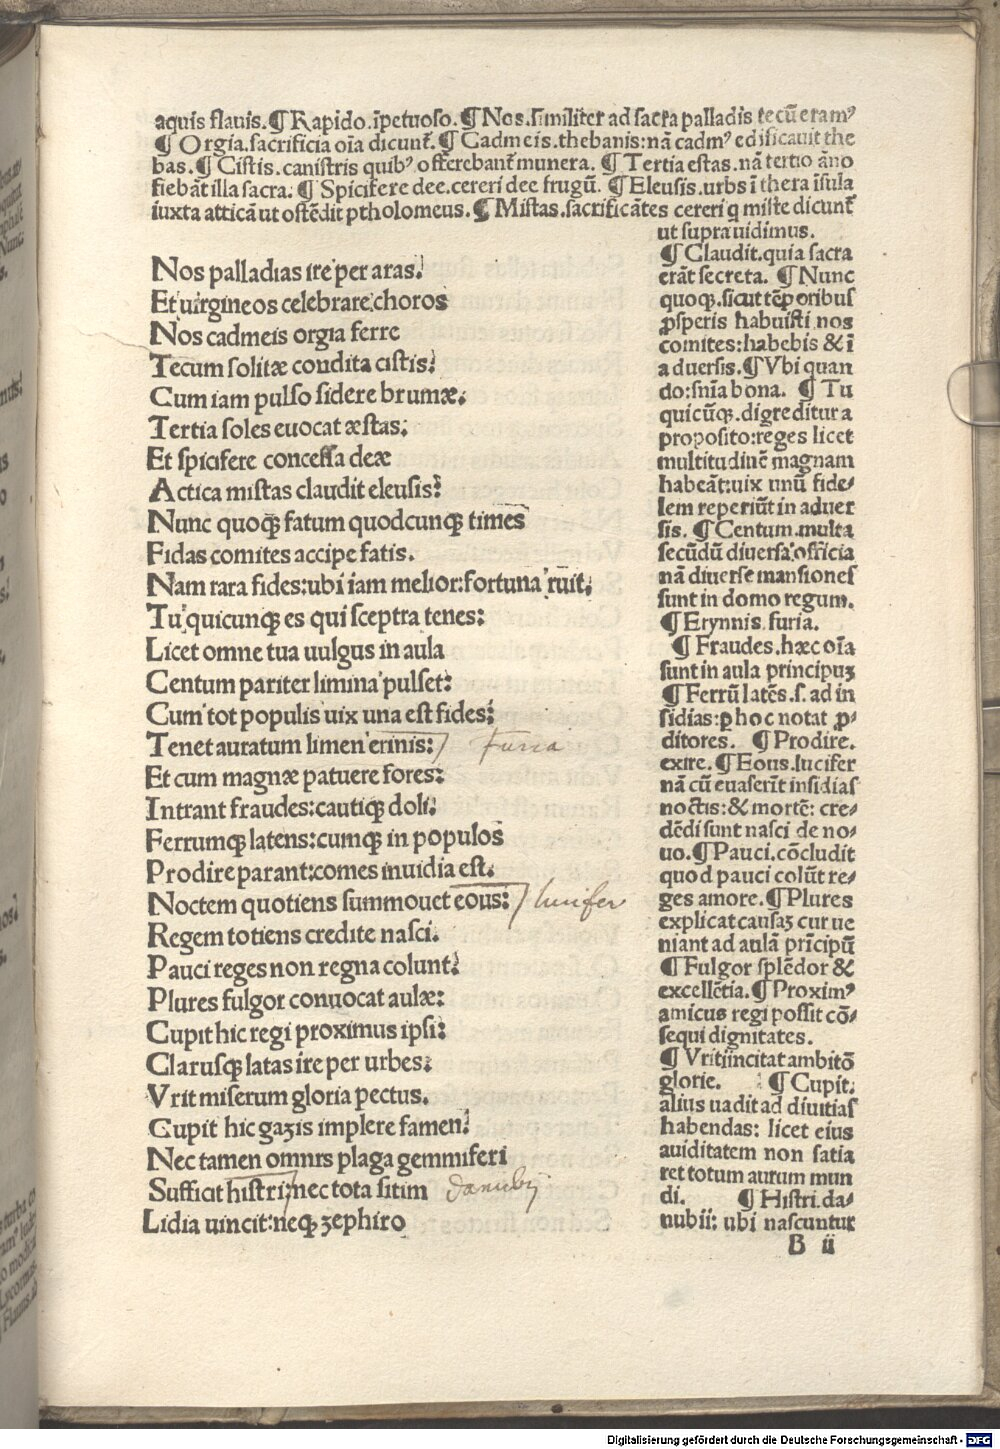 aquis flauis.¶ Rapido.īpetuoso.¶ Nos.similiter ad sacra palladis tecū eramꝰ
¶ Orgia.sacrificia oīa dicunt̄.¶ Cadmeis.thebanis:nā cadmꝰ edificauit the
bas.¶ Cistis.canistris quibꝰ offerebant̄ munera. ¶ Tertia estas.nā tertio āno
fiebāt illa sacra.¶ Spicifere dee.cereri dee frugū. ¶ Eleusis.urbs ī thera īsula
iuxta atticā ut ostēdit ptholomeus. ¶ Mistas.sacrificātes cereri q miste dicunt̄
ut supra uidimus.
Nos palladias ire per aras:
Et uirgineos celebrare choros
Nos cadmeis orgia ferre
Tecum solitæ condita cistis:
Cum iam pulso sidere brumæ:
Tertia soles euocat æstas:
Et spicifere concessa deæ
Actica mistas claudit eleusis:
Nunc quoqꝫ fatum quodcunqꝫ times
Fidas comites accipe fatis.
Nam rara fides:ubi iam melior:fortuna ruit:
Tu quicunqꝫ es qui sceptra tenes:
Licet omne tua uulgus in aula
Centum pariter limina pulset:
Cum tot populis uix una est fides:
Tenet auratum limen erinis: furia
Et cum magnæ patuere fores:
Intrant fraudes:cautiqꝫ doli:
Ferrumqꝫ latens:cumqꝫ in populos
Prodire parant:comes inuidia est.
Noctem quotiens summouet eous: lucifer
Regem totiens credite nasci.
Pauci reges non regna colunt:
Plures fulgor conuocat aulæ:
Cupit hic regi proximus ipsi:
Clarusqꝫ latas ire per urbes:
Vrit miserum gloria pectus.
Cupit hic gaʒis implere famen:
Nec tamen omnrs plaga gemmiferi
Sufficit histri:nec tota sitim danubij
Lidia uincit:neqꝫ ʒephiro
¶ Claudit.quia sacra
erāt secreta. ¶ Nunc
quoqꝫ.sicut tēporibus
ꝓsperis habuisti nos
comites:habebis & ī
aduersis.¶ Vbi quan
do:snīa bona. ¶ Tu
quicūqꝫ.digreditur a
proposito:reges licet
multitudinē magnam
habeāt:uix unū fide-
lem reperiūt in aduer
sis. ¶ Centum.multa
secūdū diuersa officia
nā diuerse mansiones
sunt in domo regum.
¶ Erynnis.furia.
¶ Fraudes.hæc oīa
sunt in aula principuꝫ
¶ Ferrū latēs.s.ad in
sidias:ꝑ hoc notat ꝓ-
ditores. ¶ Prodire.
exire. ¶ Eous.lucifer
nā cū euaserīt insidias
noctis:& mortē: cre-
dēdi sunt nasci de no-
uo.¶ Pauci.cōcludit
quod pauci colūt re-
ges amore.¶ Plures
explicat causaꝫ cur ue
niant ad aulā prīcipū
¶ Fulgor splēdor &
excellētia.¶ Proximꝰ
amicus regi possit cō-
sequi dignitates.
¶ Vrit incitat ambitō
glorie. ¶ Cupit.
alius uadit ad diuitias
habendas: licet eius
auiditatem non satia
ret totum aurum mun
di. ¶ Histri.da-
nubii: ubi nascuntur
B ii
Digitalisierung gefördert durch die Deutsche Forschungsgemeinschaft - DFG